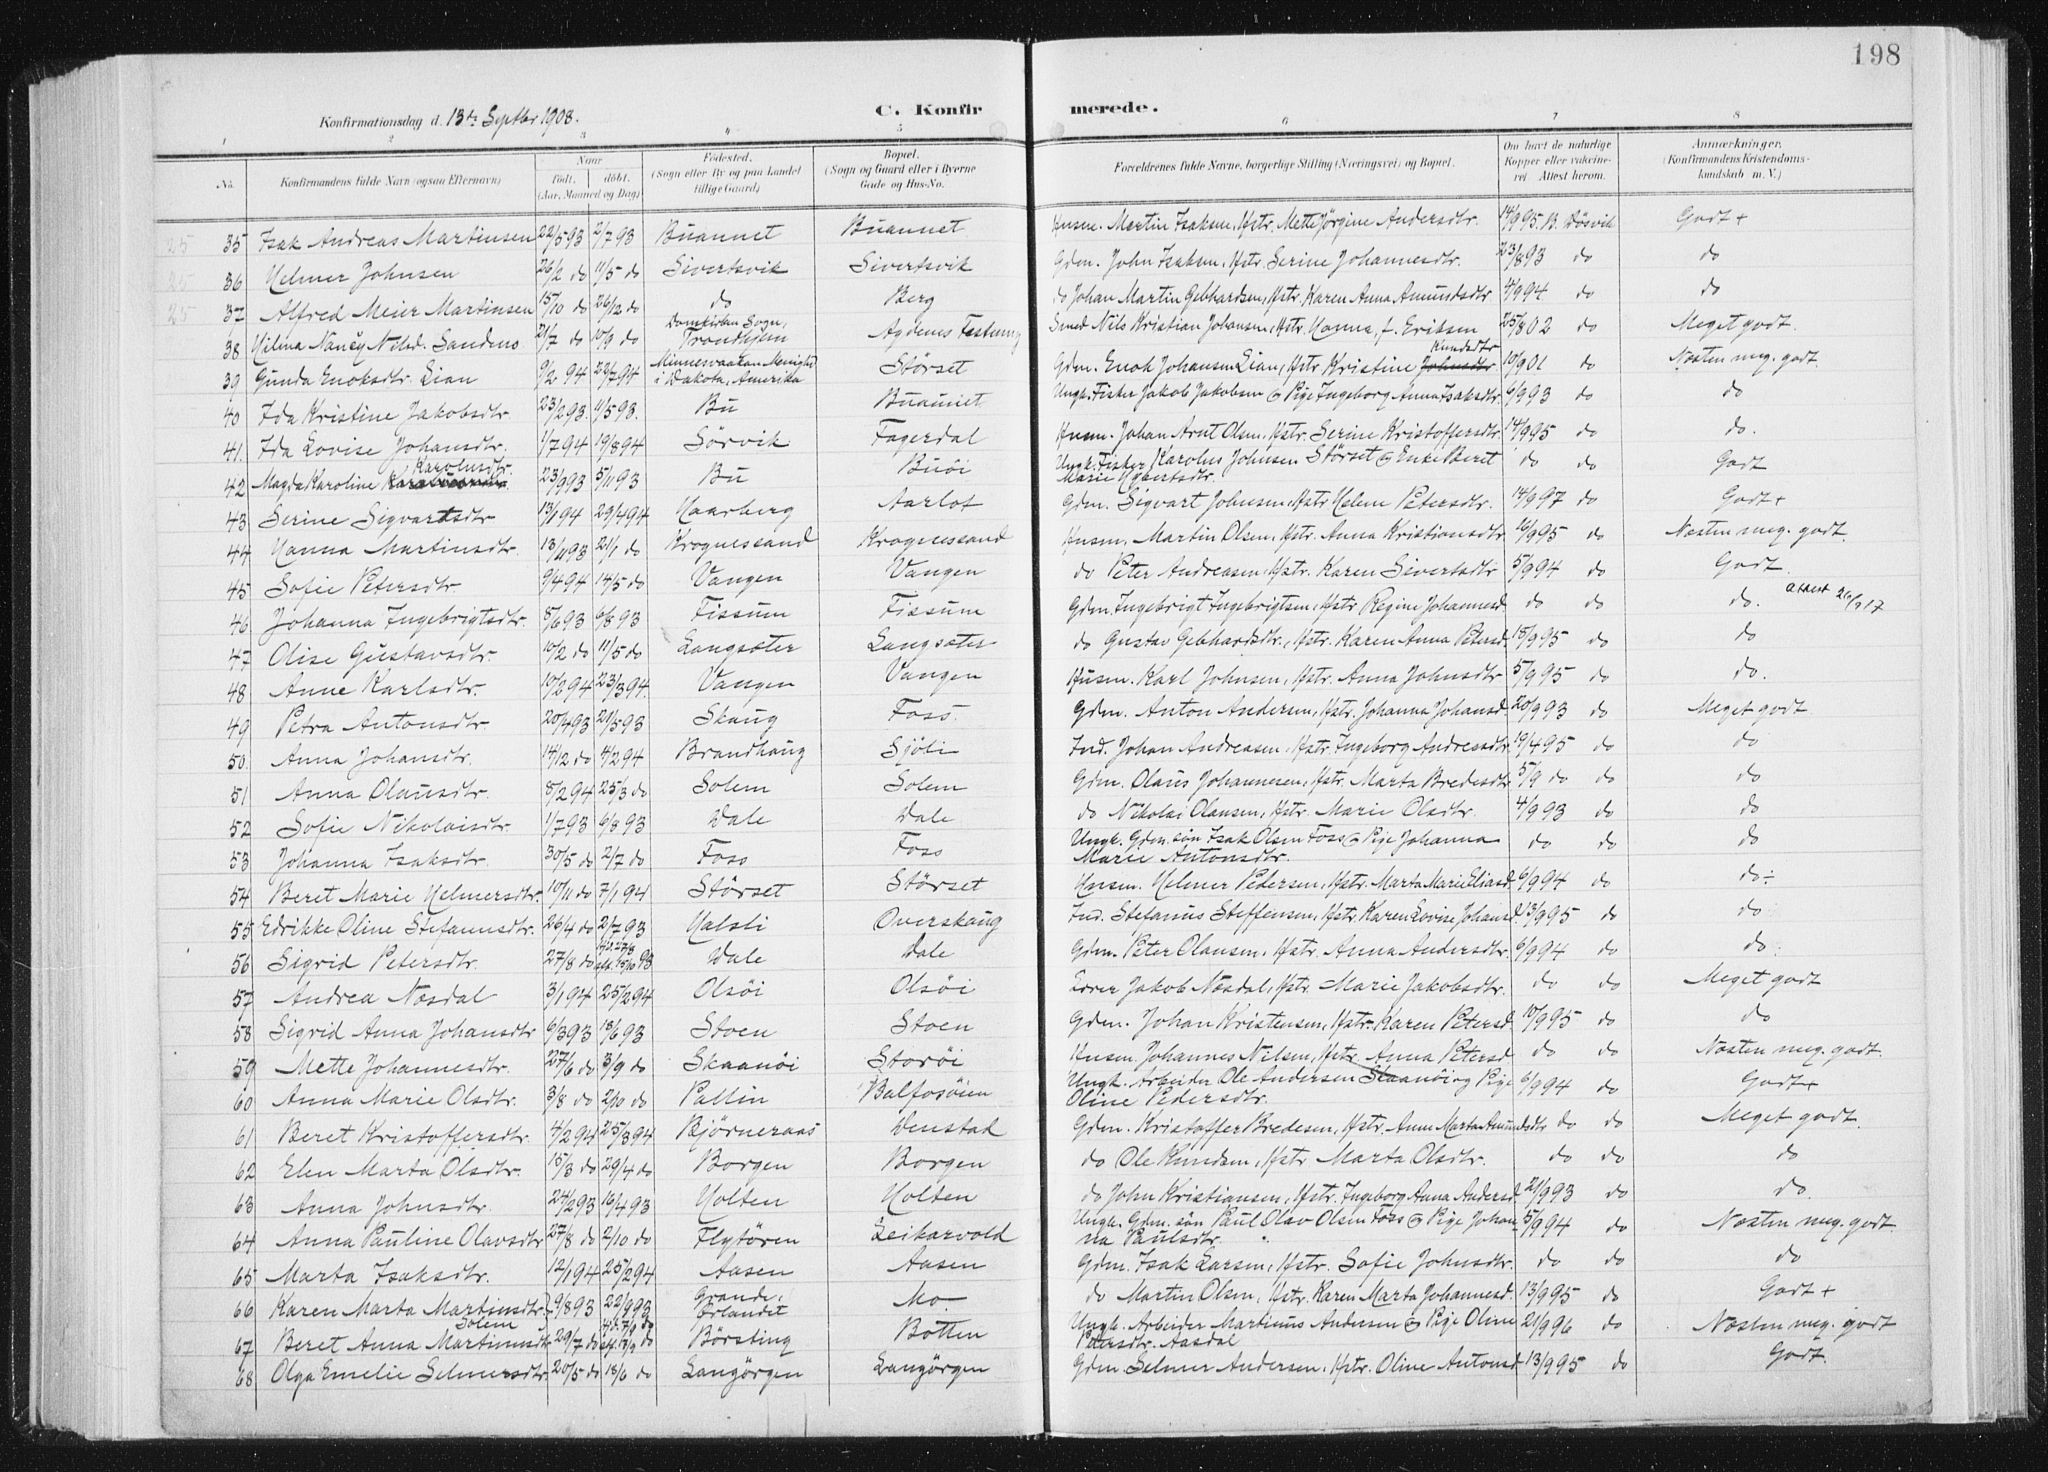 198
Konfirmationsdag d. 13de Septbr 1908.
C. Konfirmerede.
1 2 3 4 5 6 7 8
No. Konfirmandens fulde Navn (ogsaa Efternavn) Naar født. døbt. (Aar, Maaned og Dag) Fødested. (Sogn eller By og paa Landet tillige Gaard) Bopæl. (Sogn og Gaard eller i Byerne Gade og Hus-No. Forældrenes fulde Navne, borgerlige Stilling (Næringsvei) og Bopæl. Om havt de naturlige Kopper eller vakcineret Attest herom. Anmærkninger. (Konfirmandens Kristendomskundskab m. V.)
25 35 Isak Andreas Martinsen 22/5 93 2/7 93 Buannet Buannet Husm. Martin Isaksen, Hstr. Mette Jörgine Andersdtr. 14/9 95. B. Dösvik Godt +
25 36 Helmer Johnsen 26/2 do 11/5 do Sivertsvik Sivertsvik Gdm. John Isaksen, Hstr. Serine Johannesdtr. 23/8 93 do do
25 37 Alfred Meier Martinsen 15/10 do 26/12 do do Berg do Johan Martin Gebhardsen, Hstr. Karen Anna Amundsdtr 4/9 94 do do
38 Hilma Nancy Nilsd. Sandmo 21/7 do 10/9 do Domkirken Sogn, Trondhjem Agdenes Festning Smed Nils Kristian Johansen, Hstr. Hanna, f. Eriksen 25/8 02 do Meget godt.
39 Gunda Enoksdtr. Lian 9/2 94 22/7 94 Minnewaakan Menighed i Dakota, Amerika Störset Gdm. Enok Johansen Lian, Hstr Kristine Johnsdtr Knudsdtr 10/9 01 do Næsten meg. godt.
40 Ida Kristine Jakobsdtr. 23/2 93. 11/5 93. Bu Buannet Ungk. Fisker Jakob Jakobsen og Pige Ingeborg Anna Isaksdtr. 6/9 93 do do
41. Ida Lovise Johansdtr. 1/7 94 19/8 94 Sörvik Fagerdal Husm. Johan Arnt Olsen, Hstr. Serine Kristoffersdtr. 14/9 95 do do.
42 Magda Karoline Karolusdtr. 23/9 93 5/11 93 Bu Buöi Ungk. Fisker Karolus Johnsen Störset og Enke Beret Marie do do Godt
43 Serine Sigvartsdtr 13/1 94 29/4 94 Haarberg Aarlot Gdm. Sigvart Johnsen, Hstr Helene Petersdtr. 14/9 97 do Godt +
44 Hanna Martinsdtr. 13/11 93 21/1 do Krognessand Krognessand Husm. Martin Olsen, Hstr. Anna Kristiansdtr 16/9 95 do Næsten meg. godt.
45 Sofie Petersdtr 9/4 94 14/5 do Vangen Vangen do Peter Andreasen, Hstr. Karen Sivertsdtr 5/9 94 do Godt.
46 Johanna Ingebrigtsdtr. 8/6 93 6/8 93 Fissum Fissum Gdm. Ingebrigt Ingebrigtsen, Hstr. Regine Johannesd. do do do. Attest
47 Olise Gustavsdtr. 10/2 do 11/5 do Langsæter Langsæter do Gustav Gebhardsdtr., Hstr. Karen Anna Petersd. 15/9 95 do do
48 Anne Karlsdtr. 10/2 94 23/3 94 Vangen Vangen Husm. Karl Johnsen, Hstr. Anna Johnsdtr 5/9 95 do do.
49 Petra Antonsdtr. 20/4 93 21/5 93 Skaug Foss Gdm. Anton Andersen, Hstr. Johanna Johansd. 20/9 93 do Meget godt
50. Anna Johansdtr. 14/12 do 4/2 94 Brandhaug Sjöli Ind. Johan Andreasen, Hstr. Ingeborg Andreasdtr. 19/4 95 do do
51 Anna Olausdtr. 8/2 94 25/3 do Solem Solem Gdm. Olaus Johannesen, Hstr. Marta Bredesdtr. 5/9 do do do
52 Sofie Nikolaisdtr. 1/7 93 6/8 93 Dale Dale do Nikolai Olausen, Hstr. Marie Olsdtr. 4/9 93 do do
53 Johanna Isaksdtr. 30/5 do 2/7 do Foss Foss Ungk. Gdm. sön Isak Olsen Foss og Pige Johanna Marie Antonsdtr. do do do
54 Beret Marie Helmersdtr. 10/11 do 7/1 94 Störset Störset Husm. Helmer Pedersen, Hstr. Marta Marie Eliasd. 6/9 94 do do÷
55 Edrikke Oline Stefanusdtr. 26/4 do 2/7 93 Halsli Overskaug Ind. Stefanus Steffensen, Hstr. Karen Lovise Johansd. 13/9 95 do do
56 Sigrid Petersdtr. 27/8 do 15/10 93 Dale Dale Gdm. Peter Olausen, Hstr. Anna Andersdtr. 6/9 94 do do.
57 Andrea Næsdal 3/1 94 25/2 94 Olsöi Olsöi Lærer Jakob Næsdal, Hstr. Marie Jakobsdtr. do do Meget godt
58 Sigrid Anna Johansdtr. 6/3 93 18/6 93 Stoen Stoen Gdm. Johan Kristensen, Hstr. Karen Petersd. 10/9 95 do do
59 Mette Johannesdtr. 27/6 do 3/9 do Skaanöi Storöi Husm. Johannes Nilsen, Hstr. Anna Petersd do do Næsten meg. godt.
60 Anna Marie Olsdtr. 3/8 do 2/10 do Pallin Balfosöien Ungk. Arbeider Ole Andersen Skaanöi og Pige Oline Pedersdtr. 6/9 94 do Godt +
61 Beret Kristoffersdtr. 4/2 94 25/3 94 Bjørneraas Denstad Gdm. Kristoffer Bredesen, Hstr. Anne Marta Amundsdtr do do Meget godt.
62 Elen Marta Olsdtr. 15/3 do 29/4 do Borgen Borgen do Ole Knudsen, Hstr Marta Olsdtr. do do do
63 Anna Johnsdtr. 24/2 93 16/4 93 Holten Holten do John Kristiansen, Hstr. Ingeborg Anna Andersd. 21/9 93 do do.
64 Anna Pauline Olavsdtr 27/8 do 2/10 do Flytören Leikarvold Ungk. Gdm. sön Paul Olav Olsen Foss og Pige Johanna Paulsdtr. 5/9 94 do Næsten meg. godt
65 Marta Isaksdtr. 12/1 94 25/2 94 Aasen Aasen Gdm. Isak Larsen, Hstr. Sofie Johnsdtr. do do do
66 Karen Marta Martinsdtr. 9/8 93 22/9 93 Grande, Örlandet Mo. do Martin Olsen, Hstr. Karen Marta Johannesd. 13/9 95 do Godt +
67 Beret Anna Martinusdtr Solem 29/7 do Børsting Botten Ungk. Arbeider Martinus Andersen og Pige Oline Petersdtr. Aasdal 21/9 96 do Næsten meg. godt
68 Olga Emelie Selmersdtr 20/5 do 18/6 do Langörgen Langörgen Gdm. Selmer Andersen, Hstr. Oline Antonsd. 13/9 95 do Godt.